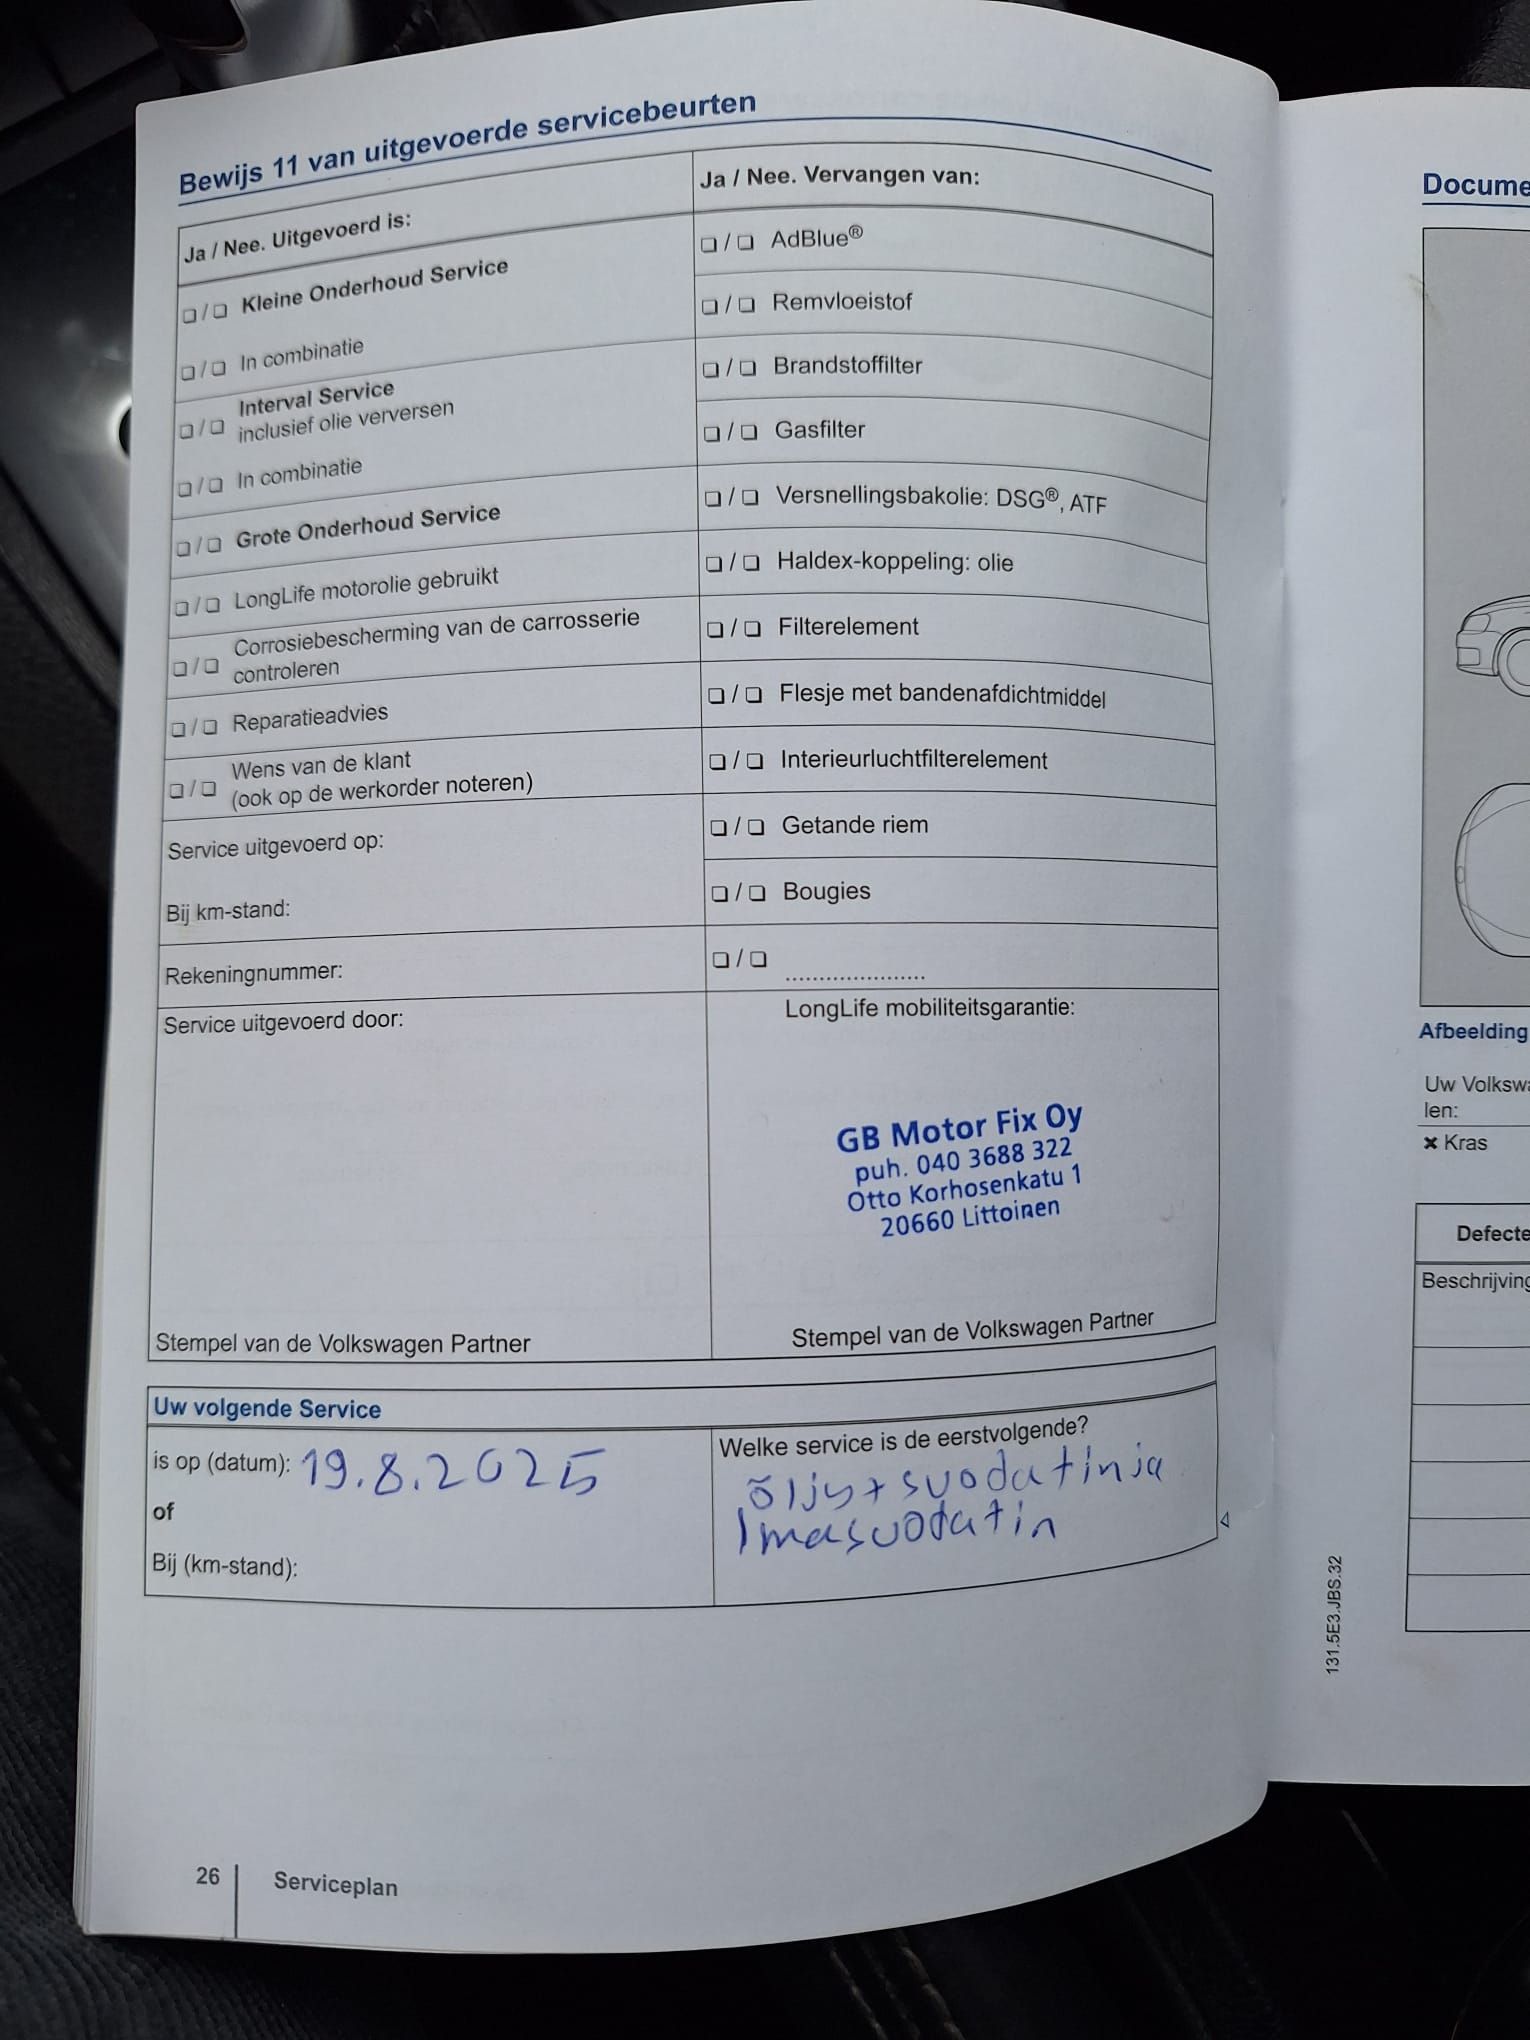 Bewijs 11 van uitgevoerde servicebeurten
Ja / Nee. Uitgevoerd is:
❏ / ❏ Kleine Onderhoud Service
❏ / ❏ In combinatie
❏ / ❏ Interval Service
inclusief olie verversen
❏ / ❏ In combinatie
❏ / ❏ Grote Onderhoud Service
❏ / ❏ LongLife motorolie gebruikt
❏ / ❏ Corrosiebescherming van de carrosserie
controleren
❏ / ❏ Reparatieadvies
❏ / ❏ Wens van de klant
(ook op de werkorder noteren)
Service uitgevoerd op:
Bij km-stand:
Rekeningnummer:
Service uitgevoerd door:
Stempel van de Volkswagen Partner
Ja / Nee. Vervangen van:
❏ / ❏ AdBlue®
❏ / ❏ Remvloeistof
❏ / ❏ Brandstoffilter
❏ / ❏ Gasfilter
❏ / ❏ Versnellingsbakolie: DSG®, ATF
❏ / ❏ Haldex-koppeling: olie
❏ / ❏ Filterelement
❏ / ❏ Flesje met bandenafdichtmiddel
❏ / ❏ Interieurluchtfilterelement
❏ / ❏ Getande riem
❏ / ❏ Bougies
❏ / ❏ .....................
LongLife mobiliteitsgarantie:
GB Motor Fix Oy
puh. 040 3688 322
Otto Korhosenkatu 1
20660 Littoinen
Stempel van de Volkswagen Partner
Uw volgende Service
is op (datum): 19.8.2025
of
Bij (km-stand):
Welke service is de eerstvolgende?
öljy+suodatin ja
Imasuodatin
26 Serviceplan
131.5E3.JBS.32
Docume
Afbeelding
Uw Volkswa
len:
✖ Kras
Defecte
Beschrijving